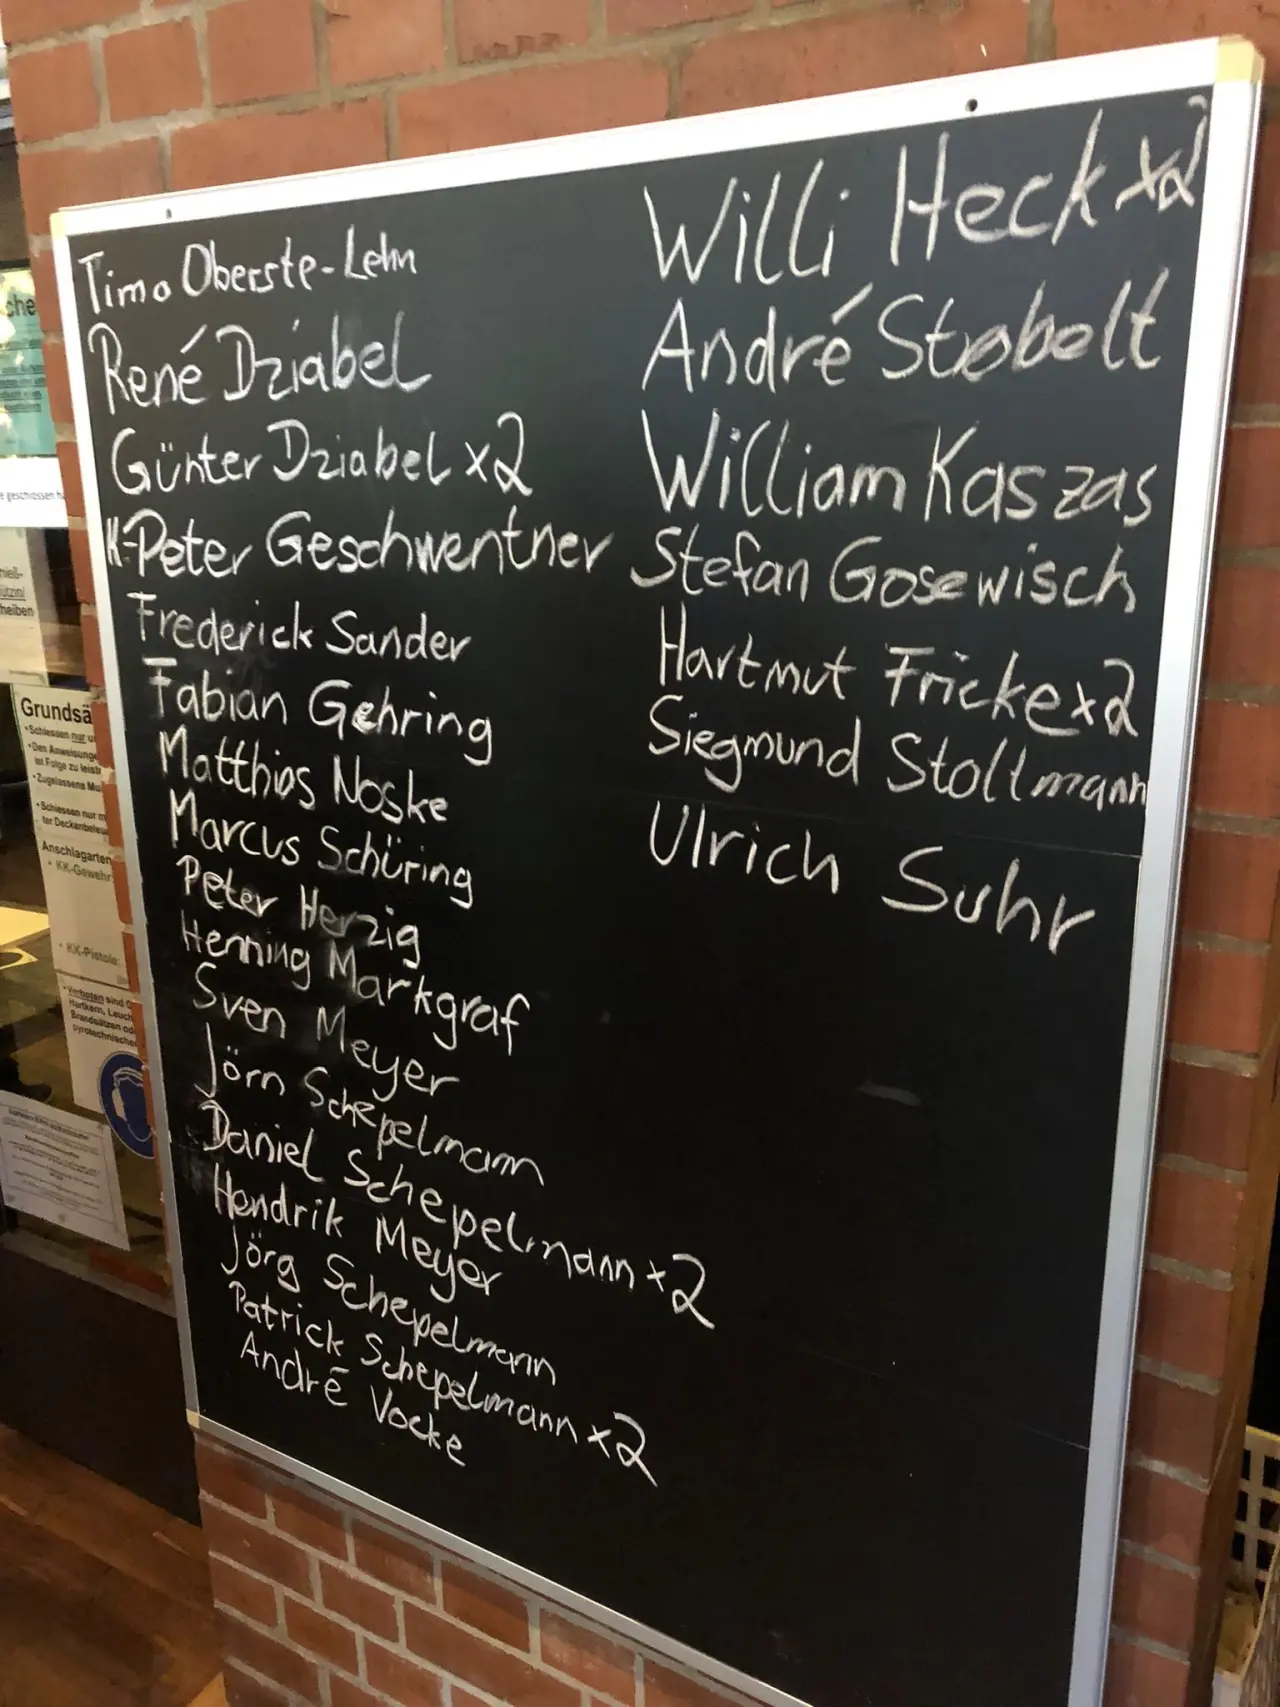 Timo Oberste-Lehn
René Dziabel
Günter Dziabel x2
K-Peter Geschwentner
Frederick Sander
Fabian Gehring
Matthias Noske
Marcus Schüring
Peter Herzig
Henning Markgraf
Sven Meyer
Jörn Schepelmann
Daniel Schepelmann x2
Hendrik Meyer
Jörg Schepelmann
Patrick Schepelmann x2
André Vocke
Willi Heck x2
André Strobelt
William Kaszas
Stefan Gosewisch
Hartmut Fricke x2
Siegmund Stoltmann
Ulrich Suhr
che
e geschossen
nieß-
heiben
Grundsä
• Schiessen nur u
• Den Anweisung
ist Folge zu leist
• Zugelassene Mu
• Schiessen nur m
ter Deckenbeleu
Anschlagarten
• KK-Gewehr
• KK-Pistole:
• Verboten sind G
Hartkern, Leuch
Brandsätzen ode
pyrotechnische